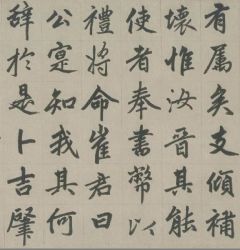 有属矣支傾補
壞惟汝晉其能
使者奉書幣以
禮將命崔君曰
公寔知我其何
辭於是卜吉肇